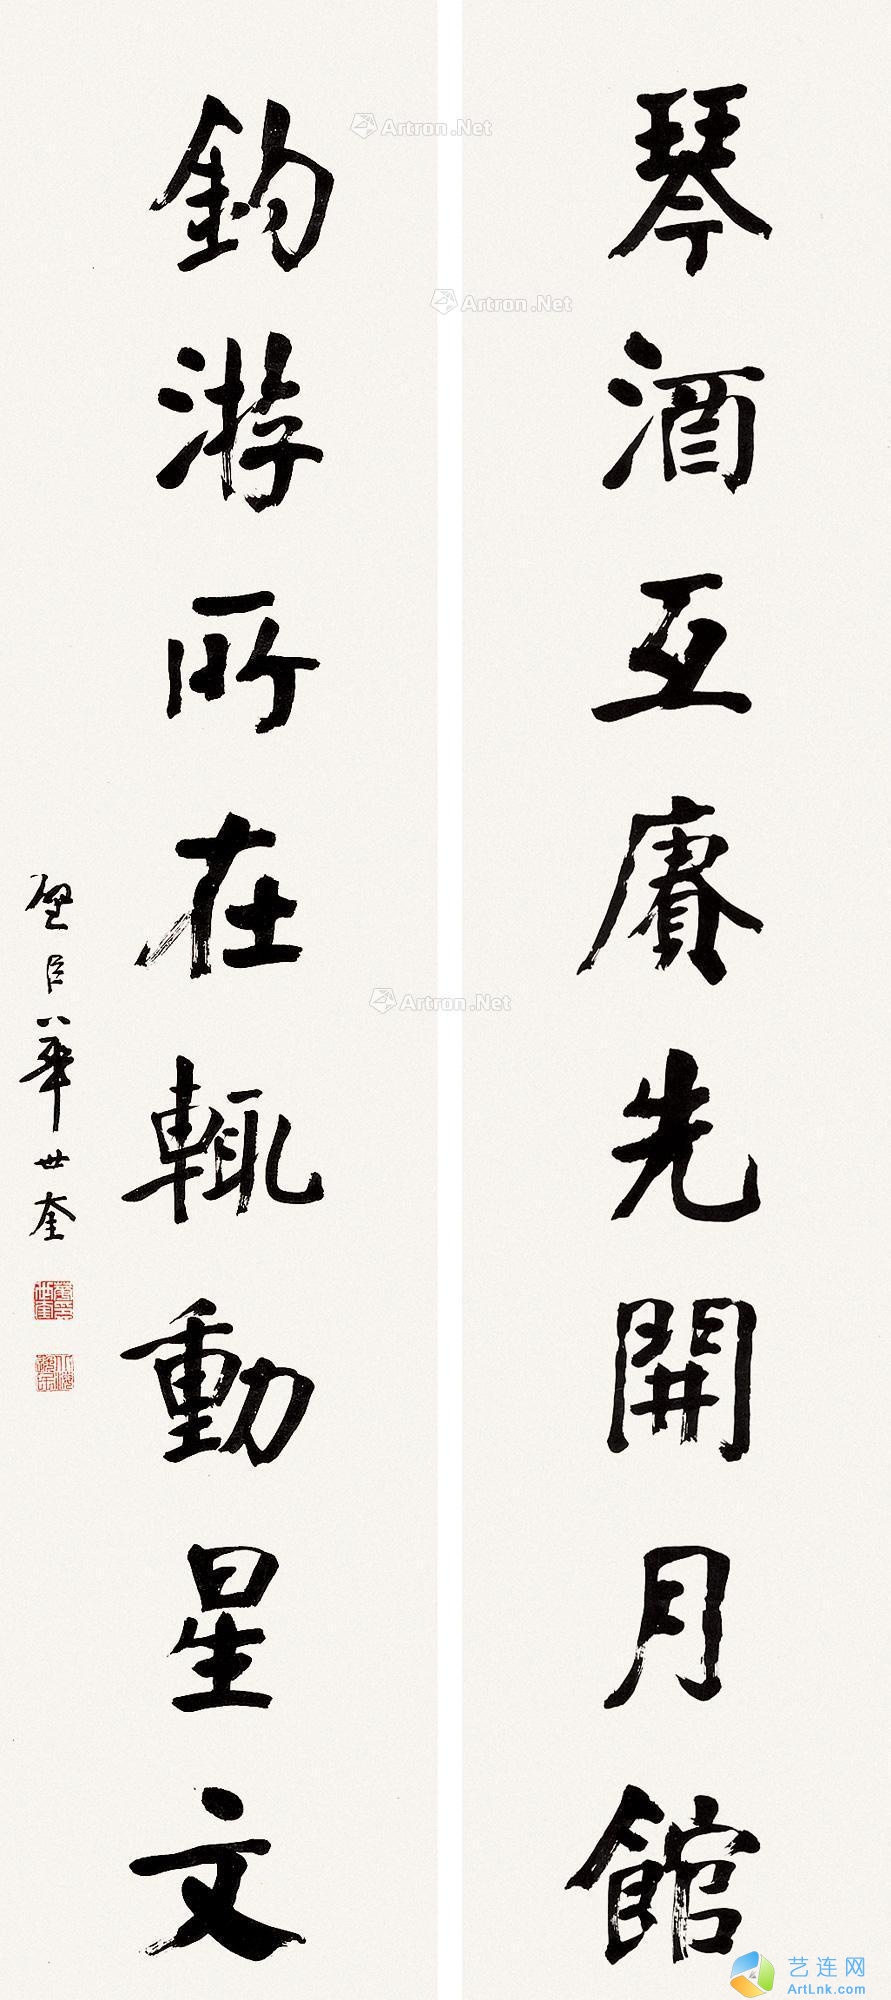 琴酒互賡先開月館
釣游所在輒動星文
璧臣華世奎
Artron.Net
Artron.Net
Artron.Net
艺连网
ArtLnk.com